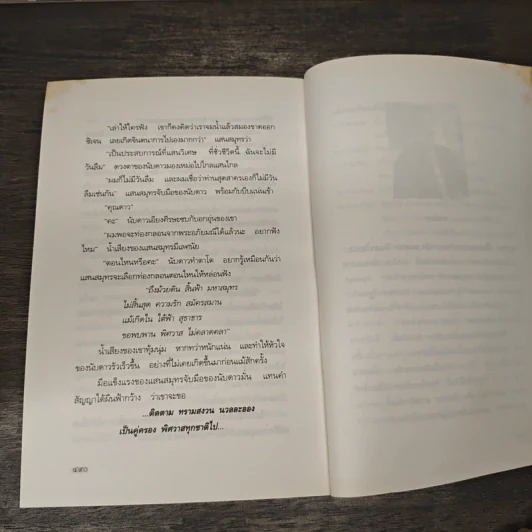 "เล่าให้ใครฟัง เขาก็คงคิดว่าเราจมน้ำแล้วสมองขาดออก
ซิเจน เลยเกิดจินตนาการไปเองมากกว่า" แสนสมุทรว่า
"เป็นประสบการณ์ที่แสนวิเศษ ที่ชั่วชีวิตนี้ ฉันจะไม่มี
วันลืม" ดวงตาของนับดาวมองเหม่อไปไกลแสนไกล
"ผมก็ไม่มีวันลืม และผมเชื่อว่าท่านสุดสาครเองก็ไม่มีวัน
ลืมเช่นกัน" แสนสมุทรจับมือของนับดาว พร้อมกับบีบแน่นเข้า
"คุณดาว"
"คะ" นับดาวเอียงศีรษะซบกับอกอุ่นของเขา
"ผมพอจะท่องกลอนจากพระอภัยมณีได้แล้วนะ อยากฟัง
ไหม" น้ำเสียงของแสนสมุทรมีเลศนัย
"ตอนไหนหรือคะ" นับดาวทำตาโต อยากรู้เหมือนกันว่า
แสนสมุทรจะเลือกท่องกลอนตอนไหนให้หล่อนฟัง
"ถึงม้วยดิน สิ้นฟ้า มหาสมุทร
ไม่สิ้นสุด ความรัก สมัครสมาน
แม้เกิดใน ใต้ฟ้า สุธาธาร
ขอพบพาน พิศวาส ไม่คลาดคลา"
น้ำเสียงของเขาทุ้มนุ่ม หากทว่าหนักแน่น และทำให้หัวใจ
ของนับดาวรัวเร็วขึ้น อย่างที่ไม่เคยเกิดขึ้นมาก่อนแม้สักครั้ง
มือแข็งแรงของแสนสมุทรจับมือของนับดาวมั่น แทนคำ
สัญญาใต้ผืนฟ้ากว้าง ว่าเขาจะขอ
...ติดตาม ทรามสงวน นวลละออง
เป็นคู่ครอง พิศวาสทุกชาติไป...